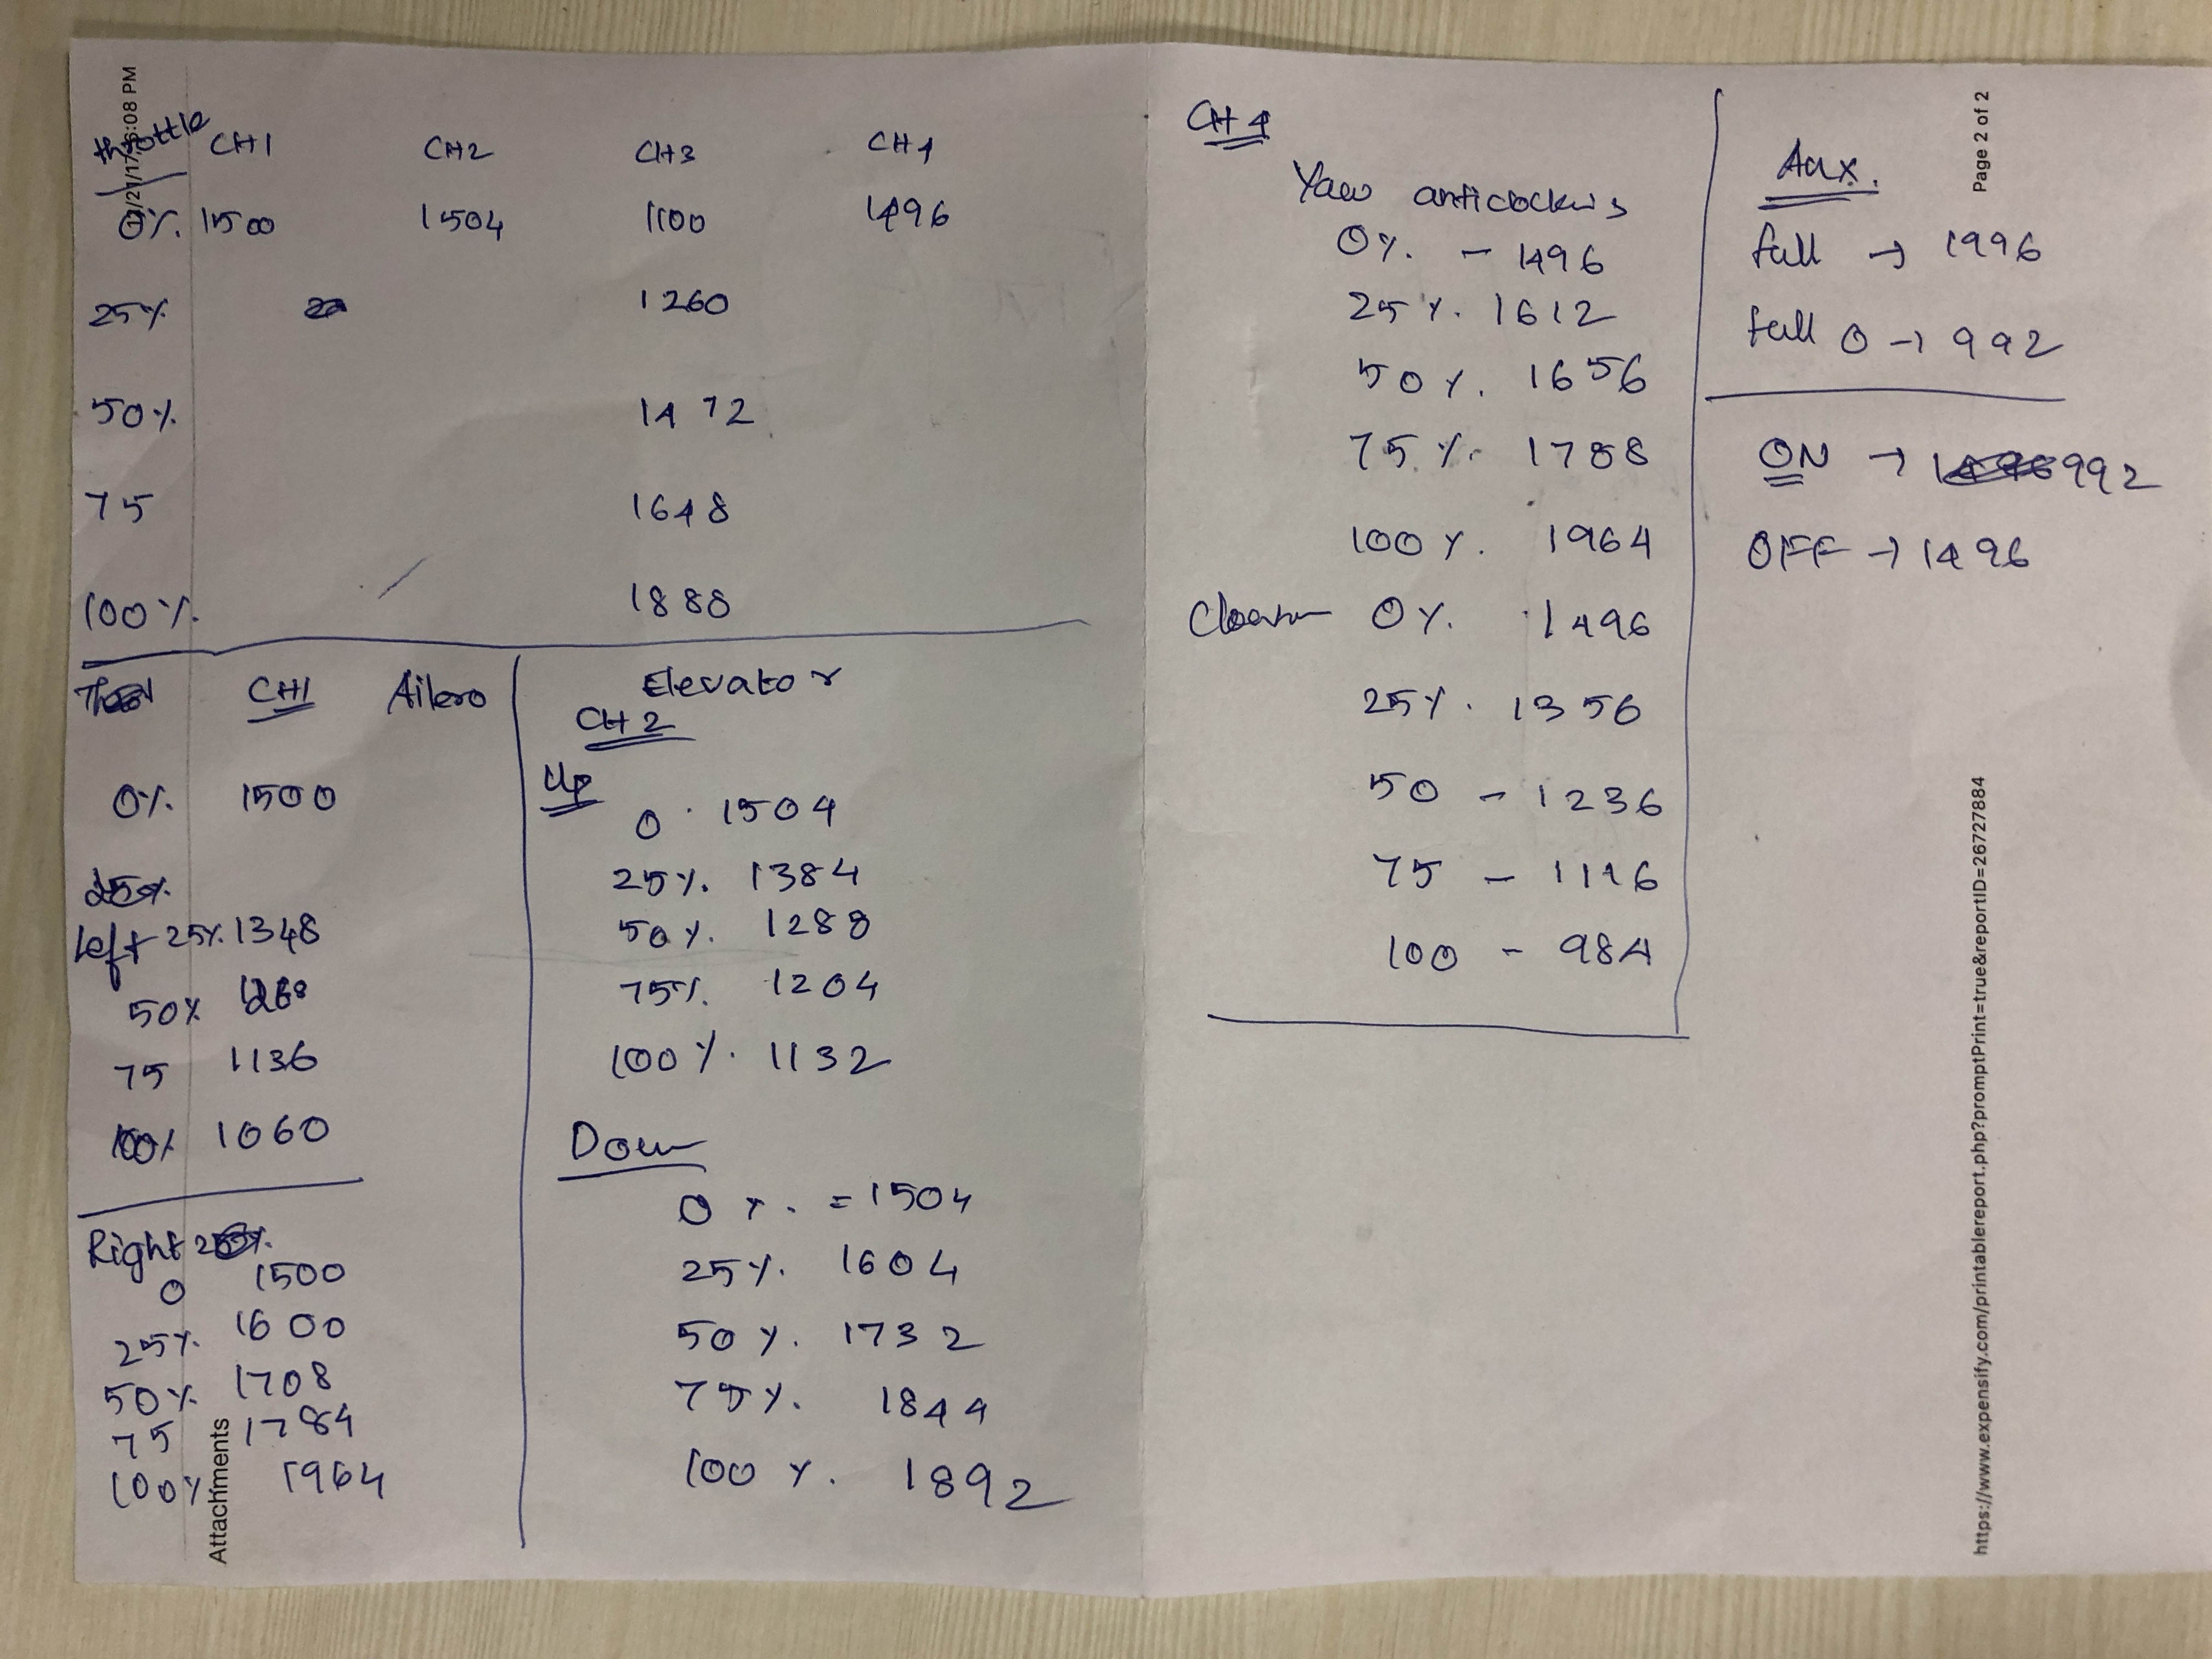 throttle CH1 CH2 CH3 CH4
0%. 1500 1504 1100 1496
25% 1260
50% 1472
75 1648
100%. 1888
CH1 Ailero
0%. 1500
25%.
Left 25%. 1348
50%
75 1136
100% 1060
Right
0 1500
25%. 1600
50% 1708
75 1784
100% 1964
Elevator
CH2
Up
0 1504
25%. 1384
50%. 1288
75%. 1204
100%. 1132
Down
0%. = 1504
25%. 1604
50%. 1732
75%. 1844
100%. 1892
CH4
Yaw anticlockwis
0%. - 1496
25%. 1612
50%. 1656
75%. 1788
100%. 1964
0%. 1496
25%. 1356
50 - 1236
75 - 1116
100 - 984
Aux.
full → 1996
full 0 → 992
ON → 992
OFF → 1496
6:08 PM
Attachments
Page 2 of 2
https://www.expensify.com/printablereport.php?promptPrint=true&reportID=26727884